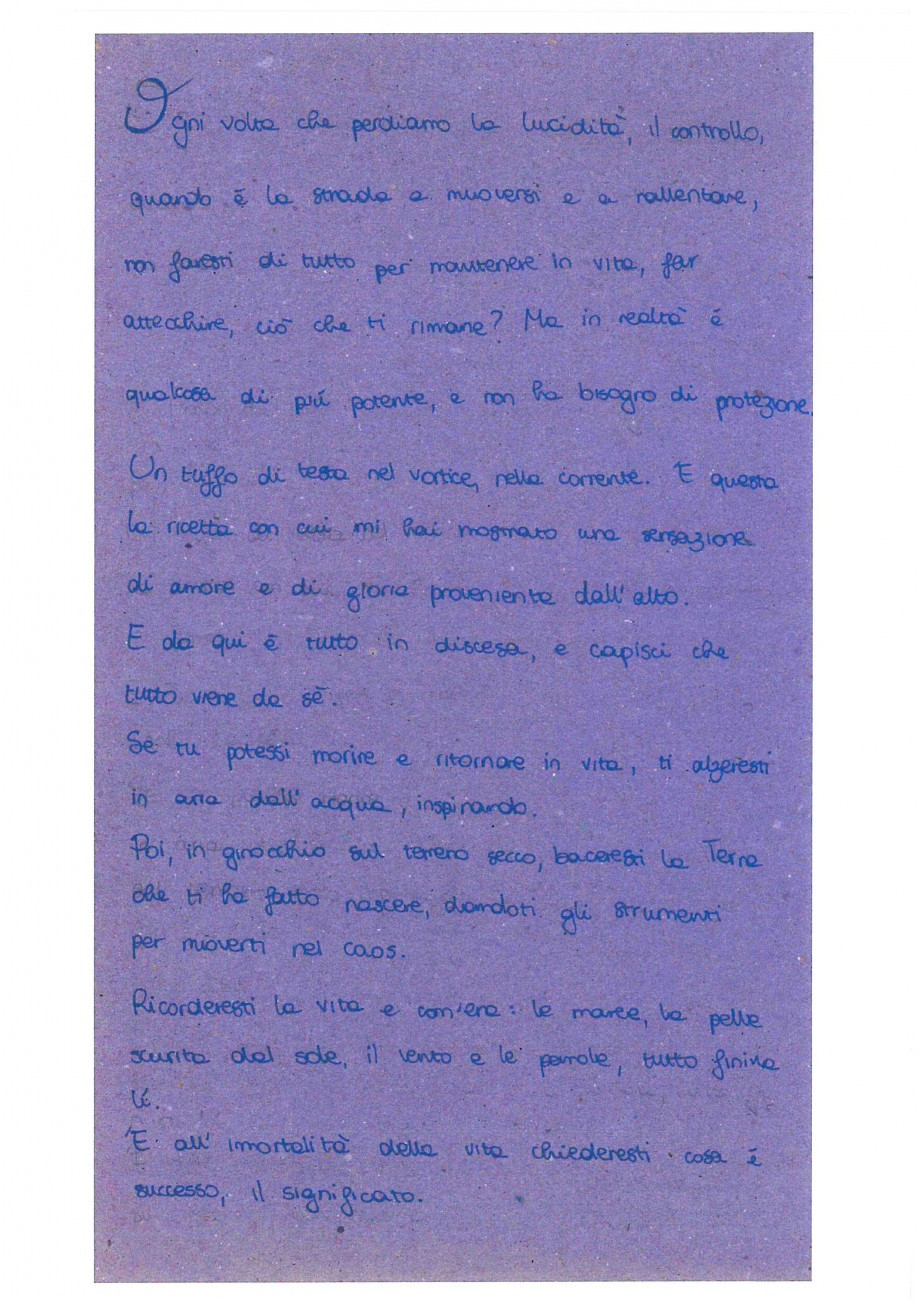 Ogni volta che perdiamo la lucidità, il controllo,
quando è la strada a muoversi e a rallentare,
non faresti di tutto per mantenere in vita, far
attecchire, ciò che ti rimane? Ma in realtà é
qualcosa di piú potente, e non ha bisogno di protezione.
Un tuffo di testa nel vortice, nella corrente. E questa
la ricetta con cui mi hai mostrato una sensazione
di amore e di gloria proveniente dall'alto.
E da qui è tutto in discesa, e capisci che
tutto viene da sè.
Se tu potessi morire e ritornare in vita, ti alzeresti
in aria dall'acqua, inspirando.
Poi, in ginocchio sul terreno secco, baceresti la Terra
che ti ha fatto nascere, dandoti gli strumenti
per muoverti nel caos.
Ricorderesti la vita e com'era: le maree, la pelle
scurita dal sole, il vento e le parole, tutto finiva
lí.
E all'imortalità della vita chiederesti cosa é
successo, il significato.